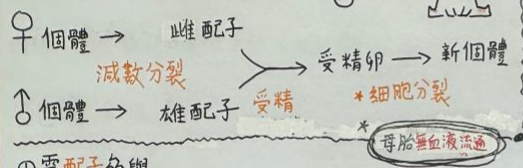 ♀個體 → 雌配子
減數分裂
受精卵 → 新個體
♂個體 → 雄配子 受精
*細胞分裂
*母胎無血液流通
配子